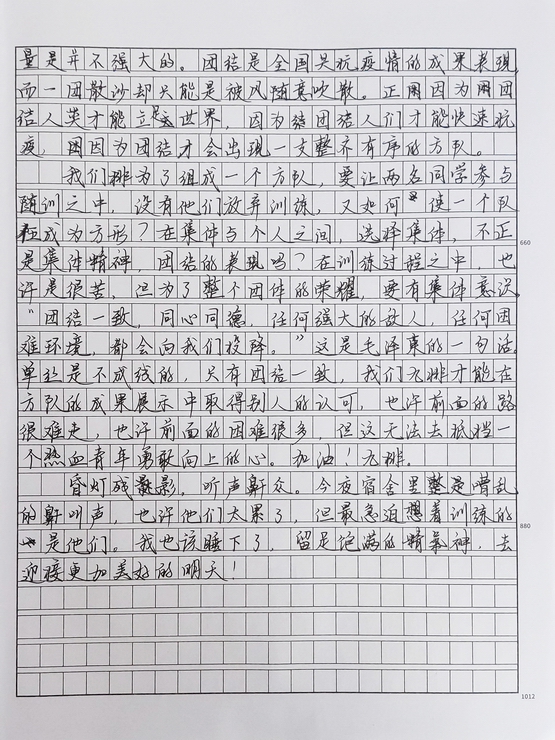 量是并不强大的。团结是全国共抗疫情的成果表现,
而一团散沙却只能是被风随意吹散。正因为团
结人类才能立足世界,因为结团结人们才能快速抗
疫,因为团结才会出现一支整齐有序的方队。
我们排为了组成一个方队,要让两名同学参与
随训之中,没有他们放弃训练,又如何使一个队
伍成为方形?在集体与个人之间,选择集体,不正 660
是集体精神,团结的表现吗?在训练过程之中 也
许是很苦,但为了整个团体的荣耀,要有集体意识。
“团结一致,同心同德,任何强大的敌人,任何困
难环境,都会向我们投降。”这是毛泽东的一句话。
单丝是不成线的,只有团结一致,我们九排才能在
方队的成果展示中取得别人的认可,也许前面的路
很难走,也许前面的困难很多 但这无法去抵挡一
个热血青年勇敢向上的心。加油!九排。
昏灯残影,听声鼾众。今夜宿舍里整是嘈乱
的鼾叫声,也许他们太累了,但最急迫想着训练的
是他们。我也该睡下了,留足饱满的精气神,去 880
迎接更加美好的明天!
1012